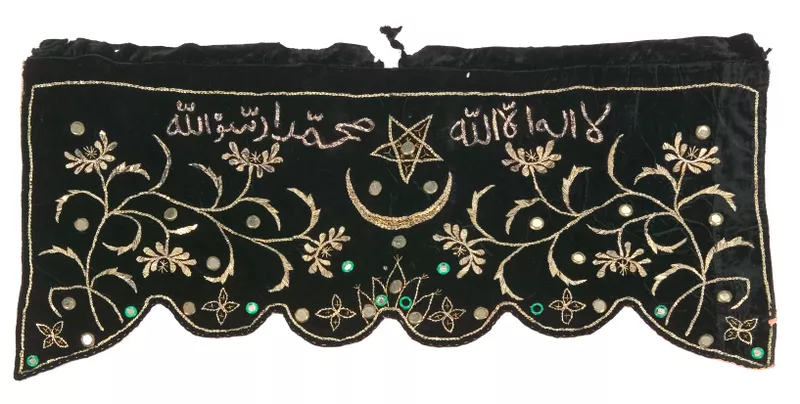 لا اله الّا الله محمّدا رسوالله